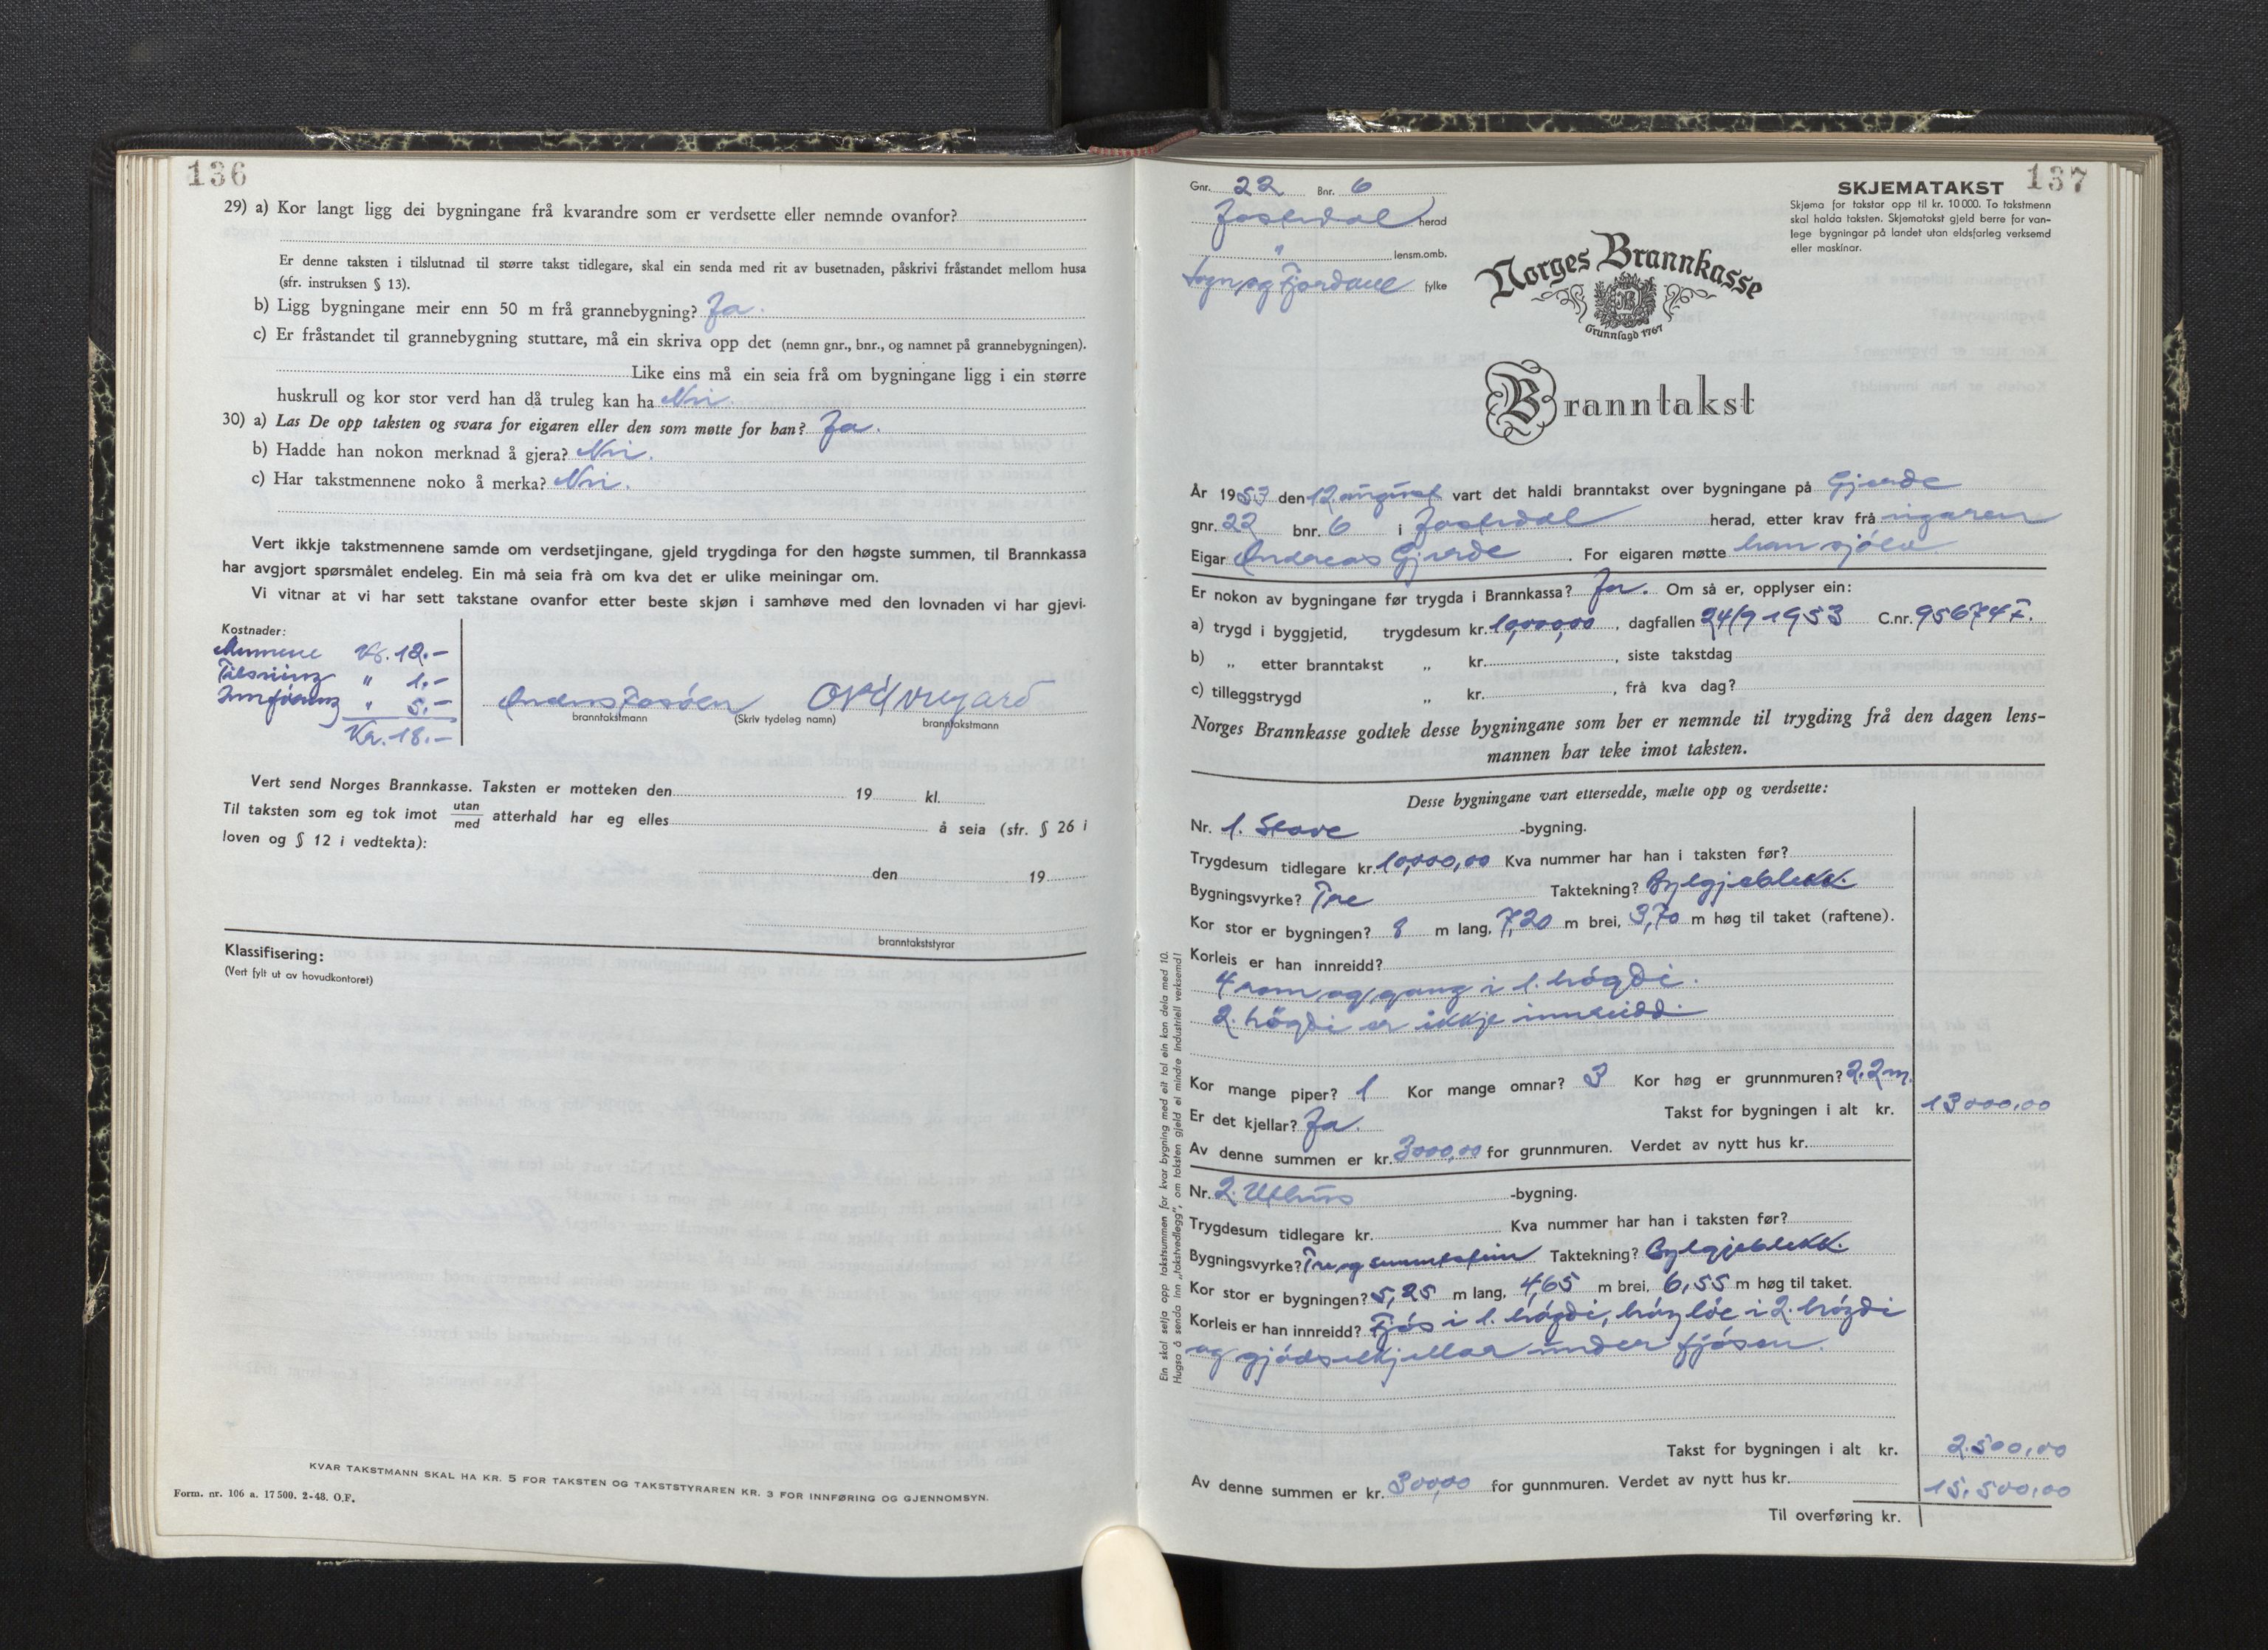 136
29) a) Kor langt ligg dei bygningane frå kvarandre som er verdsette eller nemnde ovanfor?
Er denne taksten i tilslutnad til større takst tidlegare, skal ein senda med rit av busetnaden, påskrivi fråstandet mellom husa
(sfr. instruksen § 13).
b) Ligg bygningane meir enn 50 m frå grannebygning? Ja.
c) Er fråstandet til grannebygning stuttare, må ein skriva opp det (nemn gnr., bnr., og namnet på grannebygningen).
Like eins må ein seia frå om bygningane ligg i ein større
huskrull og kor stor verd han då truleg kan ha Nei.
30) a) Las De opp taksten og svara for eigaren eller den som møtte for han? Ja.
b) Hadde han nokon merknad å gjera? Nei.
c) Har takstmennene noko å merka? Nei.
Vert ikkje takstmennene samde om verdsetjingane, gjeld trygdinga for den høgste summen, til Brannkassa
har avgjort spørsmålet endeleg. Ein må seia frå om kva det er ulike meiningar om.
Vi vitnar at vi har sett takstane ovanfor etter beste skjøn i samhøve med den lovnaden vi har gjevi.
Kostnader:
Mennene Kr. 12.-
Tilsning " 1.-
Innføring " 5.-
Kr. 18.-
Anders Fosøen
branntakstmann (Skriv tydeleg namn) branntakstmann
Vert send Norges Brannkasse. Taksten er motteken den 19 kl.
Til taksten som eg tok imot utan/med atterhald har eg elles å seia (sfr. § 26 i
loven og § 12 i vedtekta):
den 19
branntakststyrar
Klassifisering:
(Vert fylt ut av hovudkontoret)
KVAR TAKSTMANN SKAL HA KR. 5 FOR TAKSTEN OG TAKSTSTYRAREN KR. 3 FOR INNFØRING OG GJENNOMSYN.
Form. nr. 106 a. 17 500. 2-48. O.F.
137
Gnr. 22 Bnr. 6
Jostedal herad
" lensm.omb.
Sogn og Fjordane fylke
SKJEMATAKST
Skjema for takstar opp til kr. 10 000. To takstmenn
skal halda taksten. Skjematakst gjeld berre for van-
lege bygningar på landet utan eldsfarleg verksemd
eller maskinar.
Norges Brannkasse
Grunnlagd 1767
Branntakst
År 1953 den 12 august vart det haldi branntakst over bygningane på Gjerde
gnr. 22 bnr. 6 i Jostedal herad, etter krav frå eigaren
Eigar Andreas Gjerde. For eigaren møtte han sjølv
Er nokon av bygningane før trygda i Brannkassa? Ja. Om så er, opplyser ein:
a) trygd i byggjetid, trygdesum kr. 10,000,00, dagfallen 24/9 1953 C.nr. 95674 F.
b) „ etter branntakst „ kr. , siste takstdag
c) tilleggstrygd „ kr. , frå kva dag?
Norges Brannkasse godtek desse bygningane som her er nemnde til trygding frå den dagen lens-
mannen har teke imot taksten.
Desse bygningane vart ettersedde, mælte opp og verdsette:
Nr. 1. Stove -bygning.
Trygdesum tidlegare kr. 10,000,00 Kva nummer har han i taksten før?
Bygningsvyrke? Tre Taktekning? Bylgjeblekk.
Kor stor er bygningen? 8 m lang, 7,20 m brei, 3,70 m høg til taket (raftene).
Korleis er han innreidd?
4 rom og gang i 1. høgdi.
2. høgdi er ikkje innreidd
Kor mange piper? 1 Kor mange omnar? 3 Kor høg er grunnmuren? 2.2 m.
Er det kjellar? Ja. Takst for bygningen i alt kr. 13000,00
Av denne summen er kr. 3000,00 for grunnmuren. Verdet av nytt hus kr.
Nr. 2. Uthus -bygning.
Trygdesum tidlegare kr. Kva nummer har han i taksten før?
Bygningsvyrke? Tre og sementstein Taktekning? Bylgjeblekk.
Kor stor er bygningen? 5,25 m lang, 4,65 m brei, 6,55 m høg til taket.
Korleis er han innreidd? Fjøs i 1. høgdi, høyløe i 2. høgdi
og gjødselkjellar under fjøsen.
Takst for bygningen i alt kr. 2.500,00
Av denne summen er kr. 300,00 for gunnmuren. Verdet av nytt hus kr.
15.500,00
Til overføring kr.
Ein skal setja opp takstsummen for kvar bygning med eit tal ein kan dela med 10.
Hugsa å senda inn „takstvedlegg", om taksten gjeld ei mindre industriell verksemd!